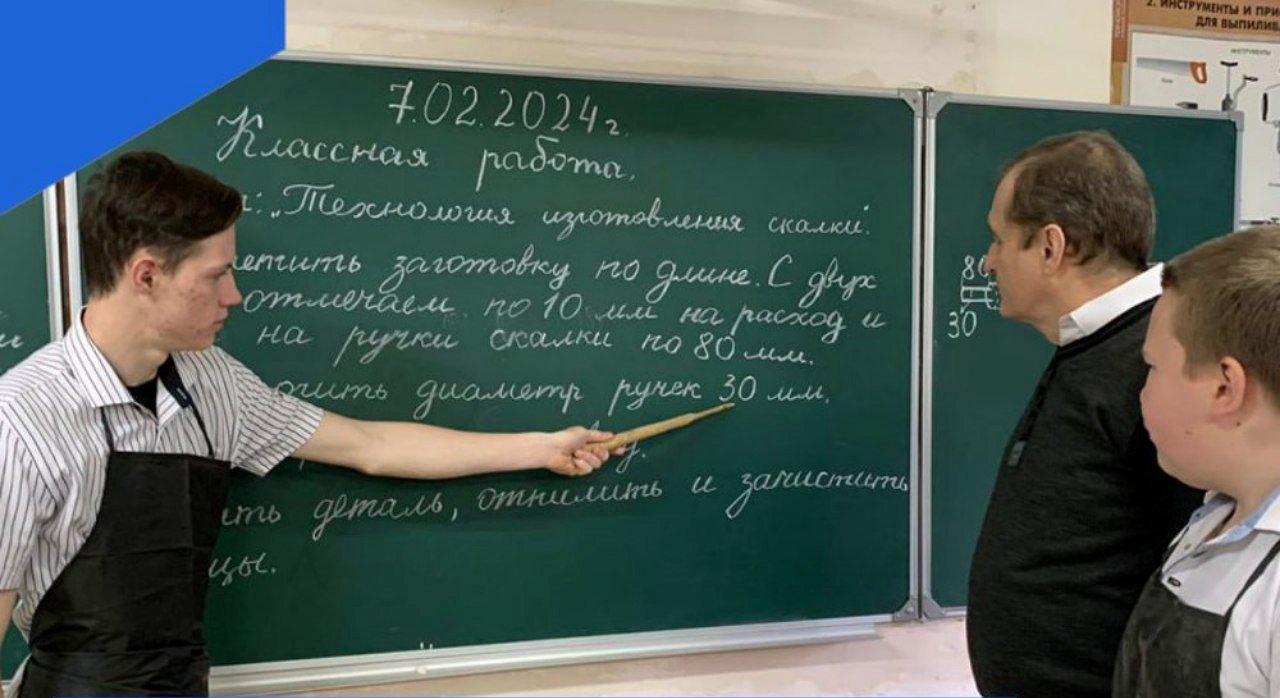 7.02.2024г.
Классная работа.
а: „Технология изготовления скалки".
етить заготовку по длине. С двух
отмечаем по 10 мм на расход и
на ручки скалки по 80 мм.
очить диаметр ручек 30 мм.
у.
ить деталь, отпилить и зачистить
цы.
80
30
2. ИНСТРУМЕНТЫ И ПРИ
ДЛЯ ВЫПИЛИВ
ИНСТРУМЕНТЫ